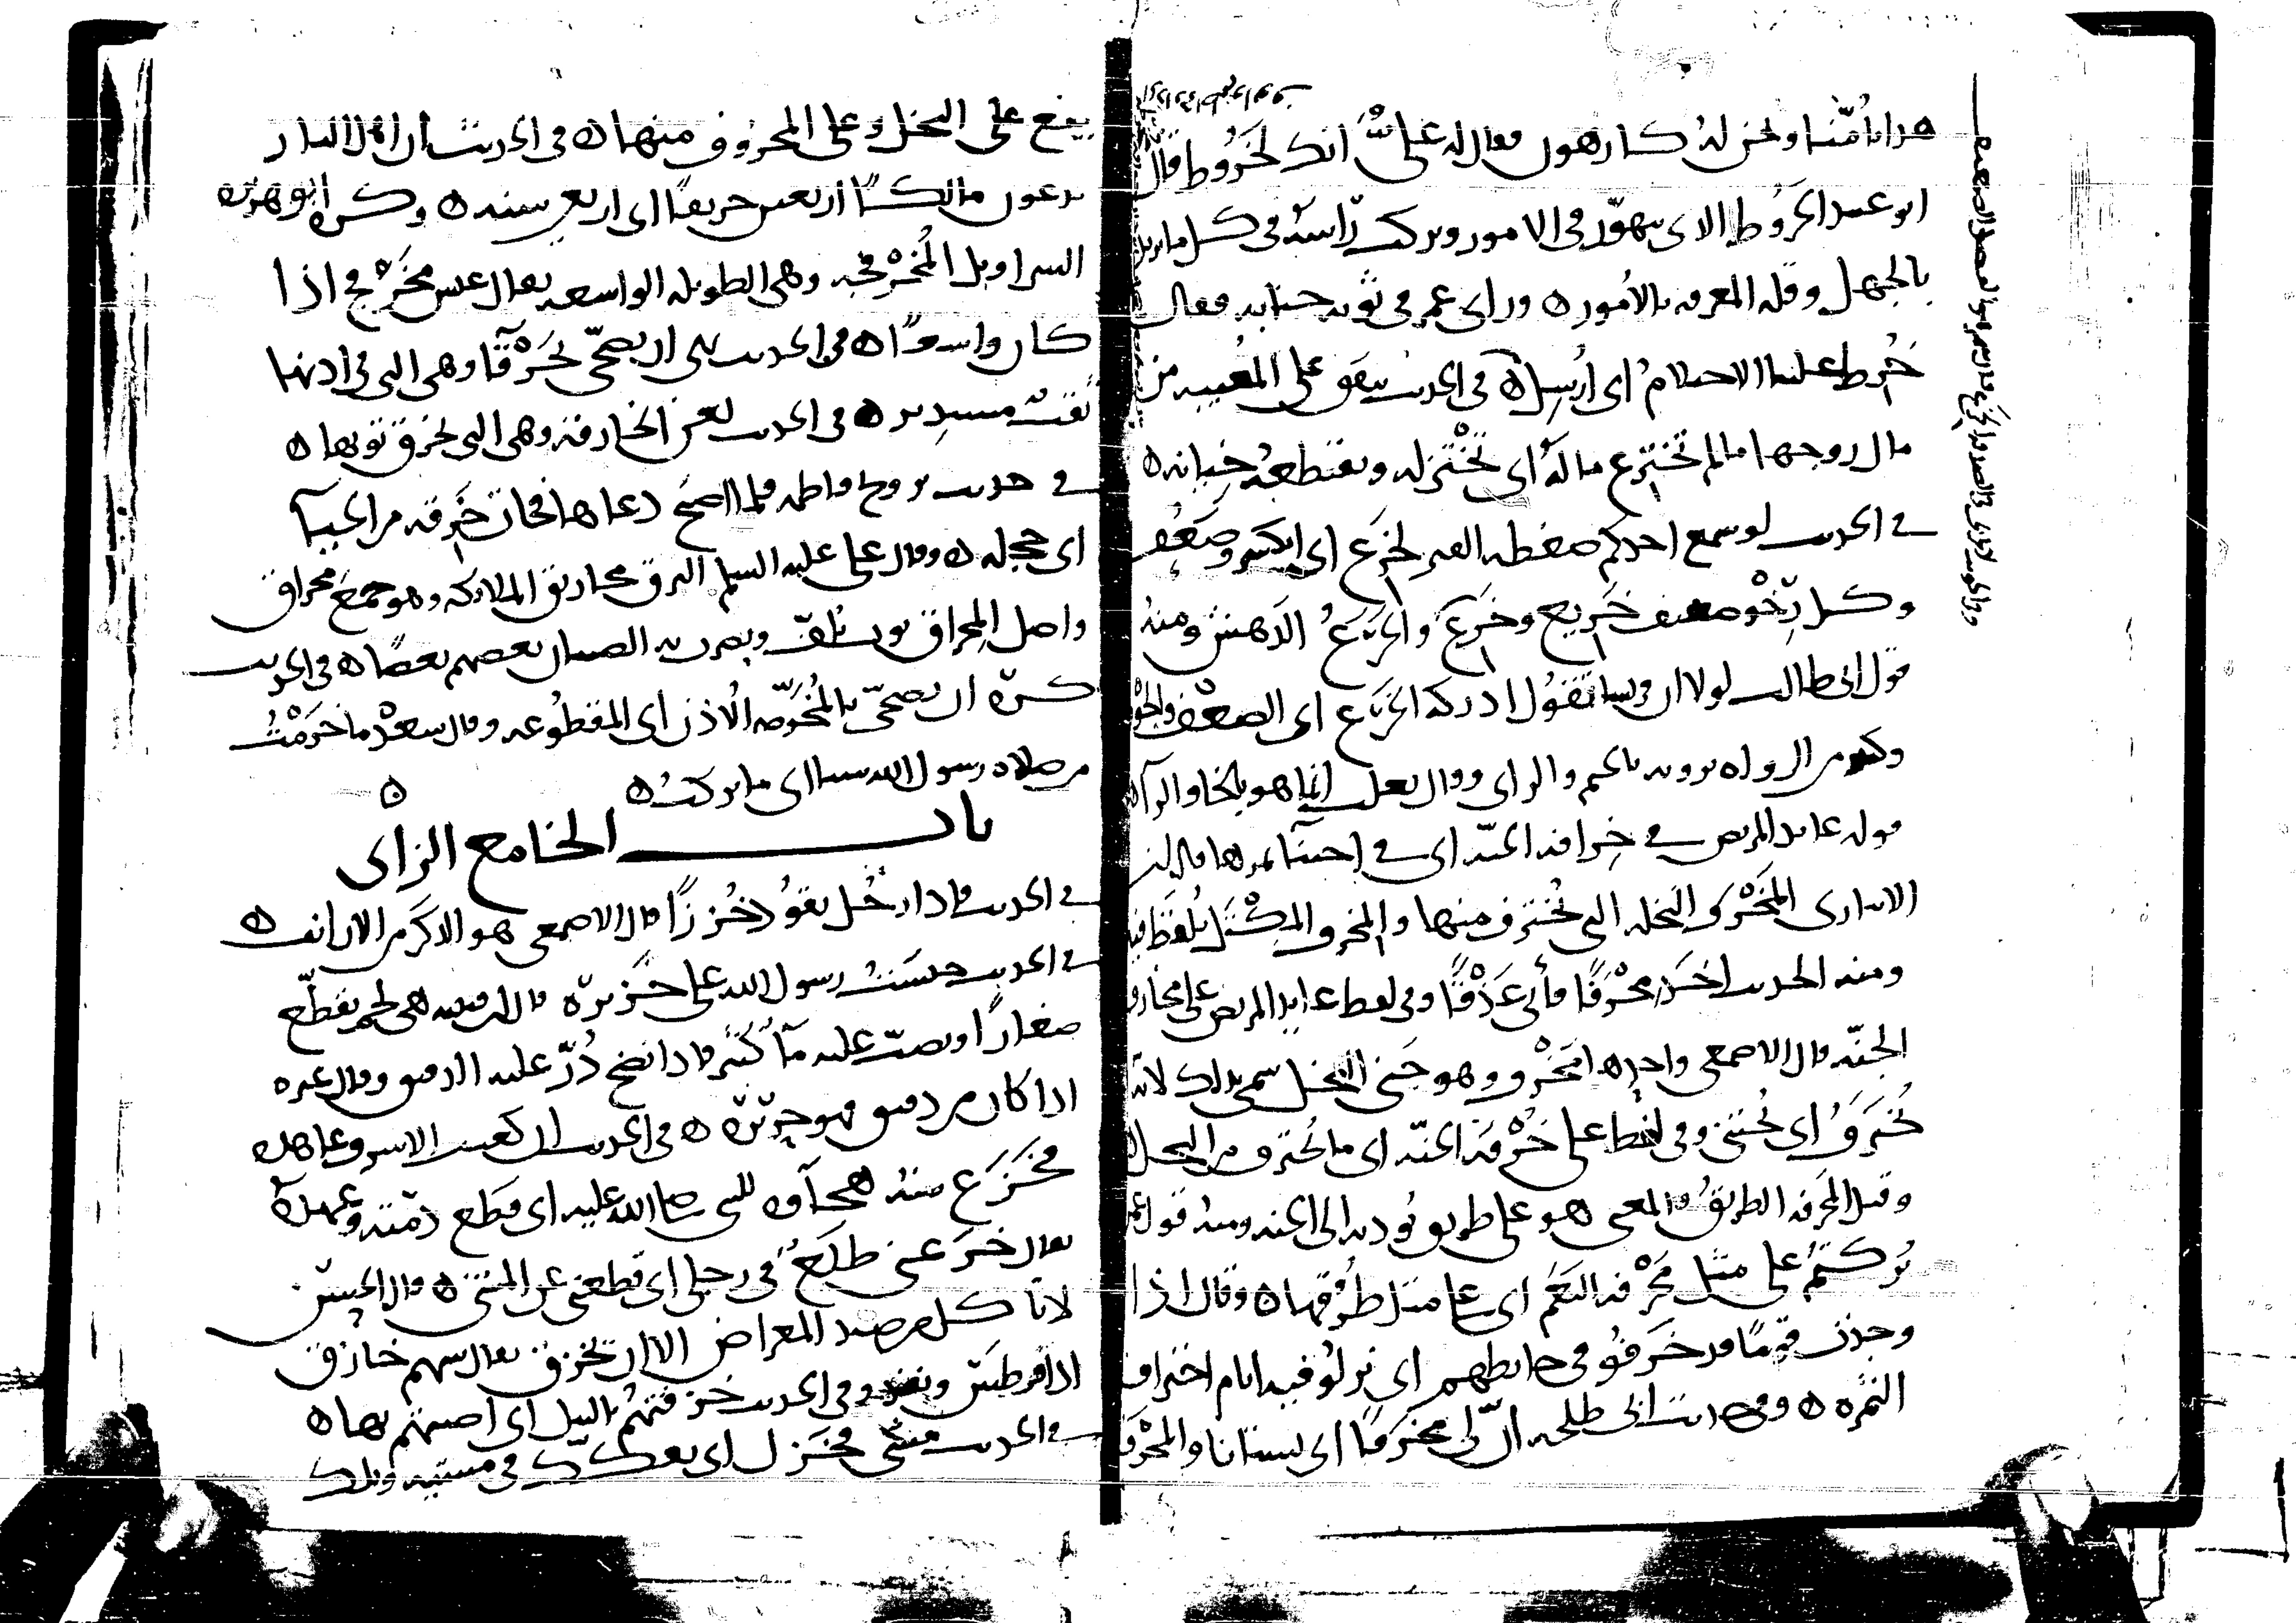 هذا يأمنا ونحن له كارهون فقال له علي انك لخروط قال
ابو عبيد الخروط الذي يتهور في الامور ويركب راسه في كل ما يريد
بالجهل وقلة المعرفة بالامور ه وراى عمر في ثوبه جنابة فقال
خرط علينا الاحتلام اى ارسل ه في الحديث ينفق على المغيبة من
مال زوجها ما لم تخترع ماله اى تختزله وتقتطعه خيانة ه
في الحديث لو سمع احدكم ضغطة القبر لخرع اى انكسر وضعف
وكل رخو ضعيف خريع وخرع والخرع الدهش ومنه
قول ابى طالب لولا ان قريشا تقول ادركه الخرع اى الضعف والخور
وكثير من الرواة يروونه بالجيم والزاى وقال ثعلب انما هو بالخا والرآ ه
قوله عايد المريض في خرافة الجنة اى في اجتنا ثمرها قال ابن
الانبارى المخرف النخلة التى تخترف منها والمخرف المكتل يلقط فيه
ومنه الحديث اخذ مخرفا فأتى عذقا وفى لفظ عايد المريض على مخارف
الجنة قال الاصمعى واحدها مخرف وهو جنى النخل سمى بذلك لانه
يخترف اى يجتنى وفى لفظ على خرفة الجنة اى ما يخترف من النخل
وقيل المخرفة الطريق فالمعنى هو على طريق تؤديه الى الجنة ومنه قول عمر
تركتم على مثل مخرفة النعم اى على مثل طرقها ه وقال اذا
وجدت قوما قد خرفوا في حايطهم اى نزلوا فيه ايام اختراف
الثمرة ه وفى حديث ابى طلحة ان لى مخرفا اى بستانا والمخرف
يقع على النخل وعلى المخروف منها ه في الحديث ان اهل النار
يدعون مالكا اربعين خريفا اى اربعين سنة ه وكره ابو هريرة
السراويل المخرفجة وهى الطويلة الواسعة يقال عيش مخرفج اذا
كان واسعا ه في الحديث نهى ان يضحى بخرقآ وهى التى في اذنها
ثقب مستدير ه في الحديث لعن الخارقة وهى التى تخرق ثوبها ه
في حديث تزويج فاطمة فلما اصبح دعاها فجات خرقة من الحيآ
اى خجلة ه وقال على عليه السلم البرق مخاريق الملايكة وهو جمع مخراق
واصل المخراق ثوب يلف ويضرب به الصبيان بعضهم بعضا ه في الحديث
كره ان يضحى بالمخرمة الاذن اى المقطوعة وقال سعد ما خرمت
من صلاة رسول الله شيئا اى ما تركت ه
باب الخا مع الزاى
في الحديث فاذا رجل يقود خززا قال الاصمعى هو الذكر من الارانب ه
في الحديث حبست رسول الله على خزيرة قال ابن قتيبة هى لحم يقطع
صغارا ويصب عليه مآ كثير فاذا نضج ذر عليه الدقيق وقال غيره
اذا كان من دقيق فهو حريرة ه في الحديث ان كعب بن الاشرف عاهد
فخزع منه هجآوه للنبى صلى الله عليه اى قطع ذمته وعهده
يقال خزع عنى ظلع في رجلى اى قطعنى عن المشى ه قال الحسن
لا تاكل من صيد المعراض الا ان تخزق يقال سهم خازق
اذا قرطس ونفذ وفى الحديث خزقتهم بالنبل اى اصبتهم بها ه
في الحديث مشى فخزل اى تفكك في مشيته وتلك